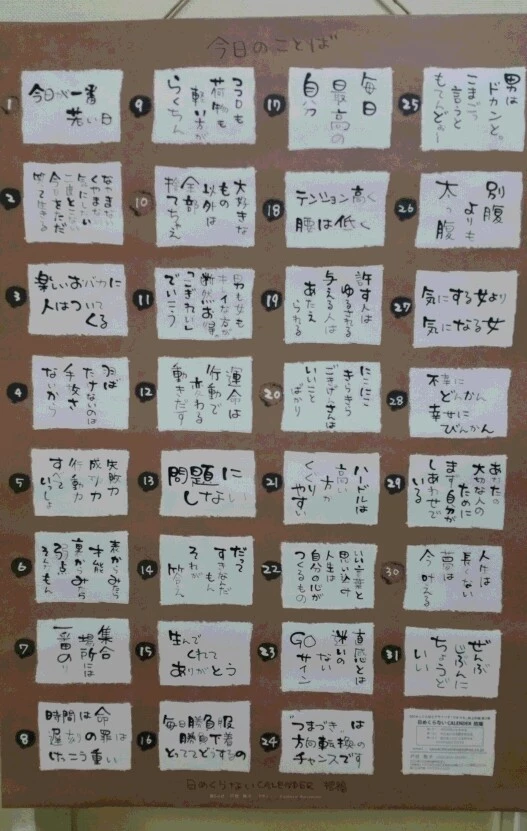 今日のことば
1
今日が一番
若い日
2
なやまない
くやまない
気にしない
二度とこない
今日をただ
笑って生きる
3
楽しいおバカに
人はついて
くる
4
羽ば
たけないのは
手放さ
ないから
5
失敗力
成功力
行動力
すべて
いっしょ
6
表からみたら
才能
裏からみたら
弱点
7
集合
場所には
一番のり
8
時間は命
遅刻の罪は
けっこう重い
9
ココロも
荷物も
軽い方が
らくちん
10
大好きな
もの
以外は
全部
捨てちゃえ
11
男も女も
キレイな方が
断然お得
「こぎれい」
でいこう
12
運命は
行動で
変わる
動きだす
13
問題に
しない
14
だって
すきなんだ
もん
それが
答え
15
生んで
くれて
ありがとう
16
毎日勝負服
勝負下着
とっててどうするの
17
毎日
最高の
自分
18
テンション高く
腰は低く
19
許す人は
ゆるされる
与える人は
あたえ
られる
20
にこにこ
きらきら
ごきげんさんは
いいこと
ばかり
21
ハードルは
高い
方が
くぐり
やすい
22
いい言葉と
思い込め
人生は
自分の心が
つくるもの
23
直感とは
迷いの
ない
GO
サイン
24
"つまづき"は
方向転換の
チャンスです
25
男は
ドカンと。
こまごま
言うと
もてんどぉー
26
別腹
よりも
太っ腹
27
気にする女より
気になる女
28
不幸に
どんかん
幸せに
びんかん
29
あなたの
大切な人の
ために
まず自分が
しあわせで
いる
30
人生は
長くない
夢は
今叶える
31
ぜんぶ
じぶんに
ちょうど
いい
日めくらないCALENDER
日めくらないCALENDER